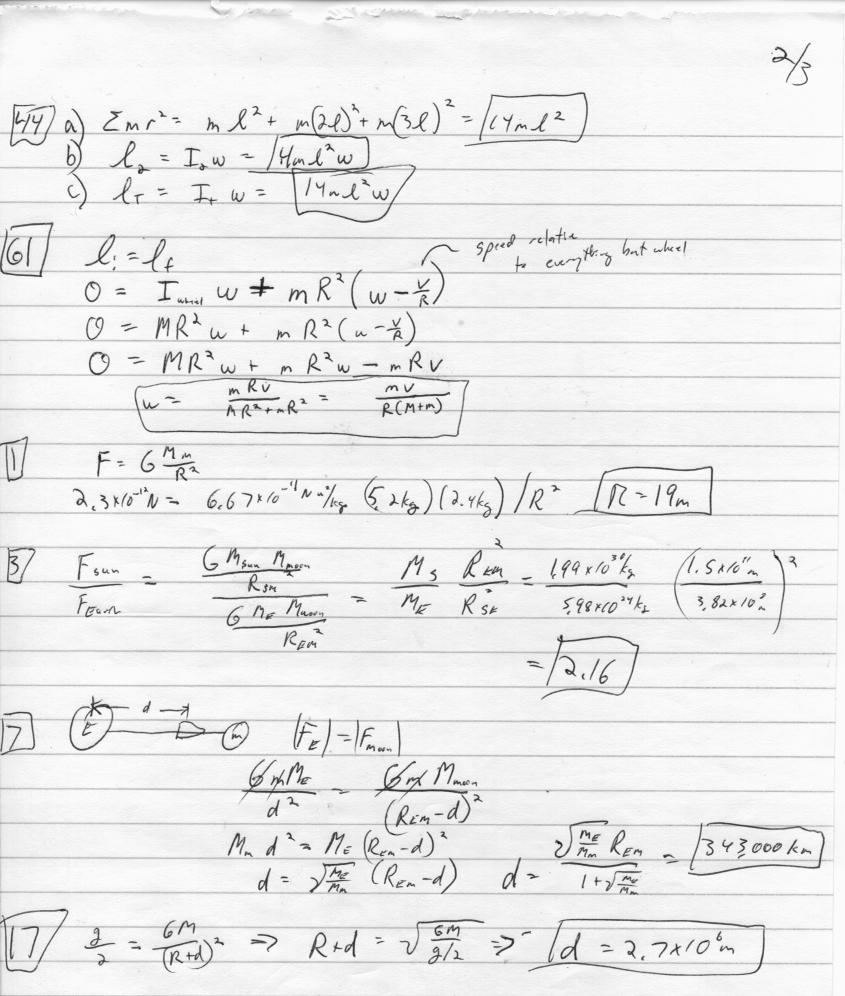 2/3
44 a) Σmr² = ml² + m(2l)² + m(3l)² = 14ml²
b) l₂ = I₂w = 4ml²w
c) l_T = I_T w = 14ml²w
61 l_i = l_f
speed relative
to everything but wheel
0 = I_wheel w + mR²(w - V/R)
0 = MR²w + mR²(w - V/R)
0 = MR²w + mR²w - mRV
w = mRV / MR²+mR² = mV / R(M+m)
1 F = G Mm/R²
2.3×10⁻¹²N = 6.67×10⁻¹¹ N m²/kg (5.2kg)(2.4kg)/R² R = 19m
3 F_sun/F_Earth = (G M_sun M_moon / R_SM²) / (G M_E M_moon / R_EM²) = M_S/M_E R_EM²/R_SE² = 1.99×10³⁰kg / 5.98×10²⁴kg (1.5×10¹¹m / 3.82×10⁸m)²
= 2.16
7 E d m |F_E| = |F_moon|
GmM_E / d² = GmM_moon / (R_EM-d)²
M_m d² = M_E (R_EM-d)²
d = √(M_E/M_m) (R_EM-d) d = √(M_E/M_m) R_EM / 1+√(M_E/M_m) = 343,000 km
17 g/2 = GM/(R+d)² ⇒ R+d = √(GM/g/2) ⇒ d = 2.7×10⁶m